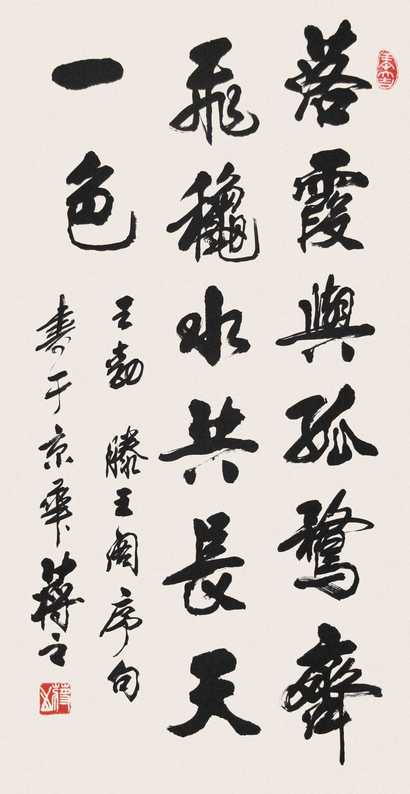 落霞與孤鶩齊
飛龝水共長天
一色
王勃 滕王閣序句
書于京華 蔣